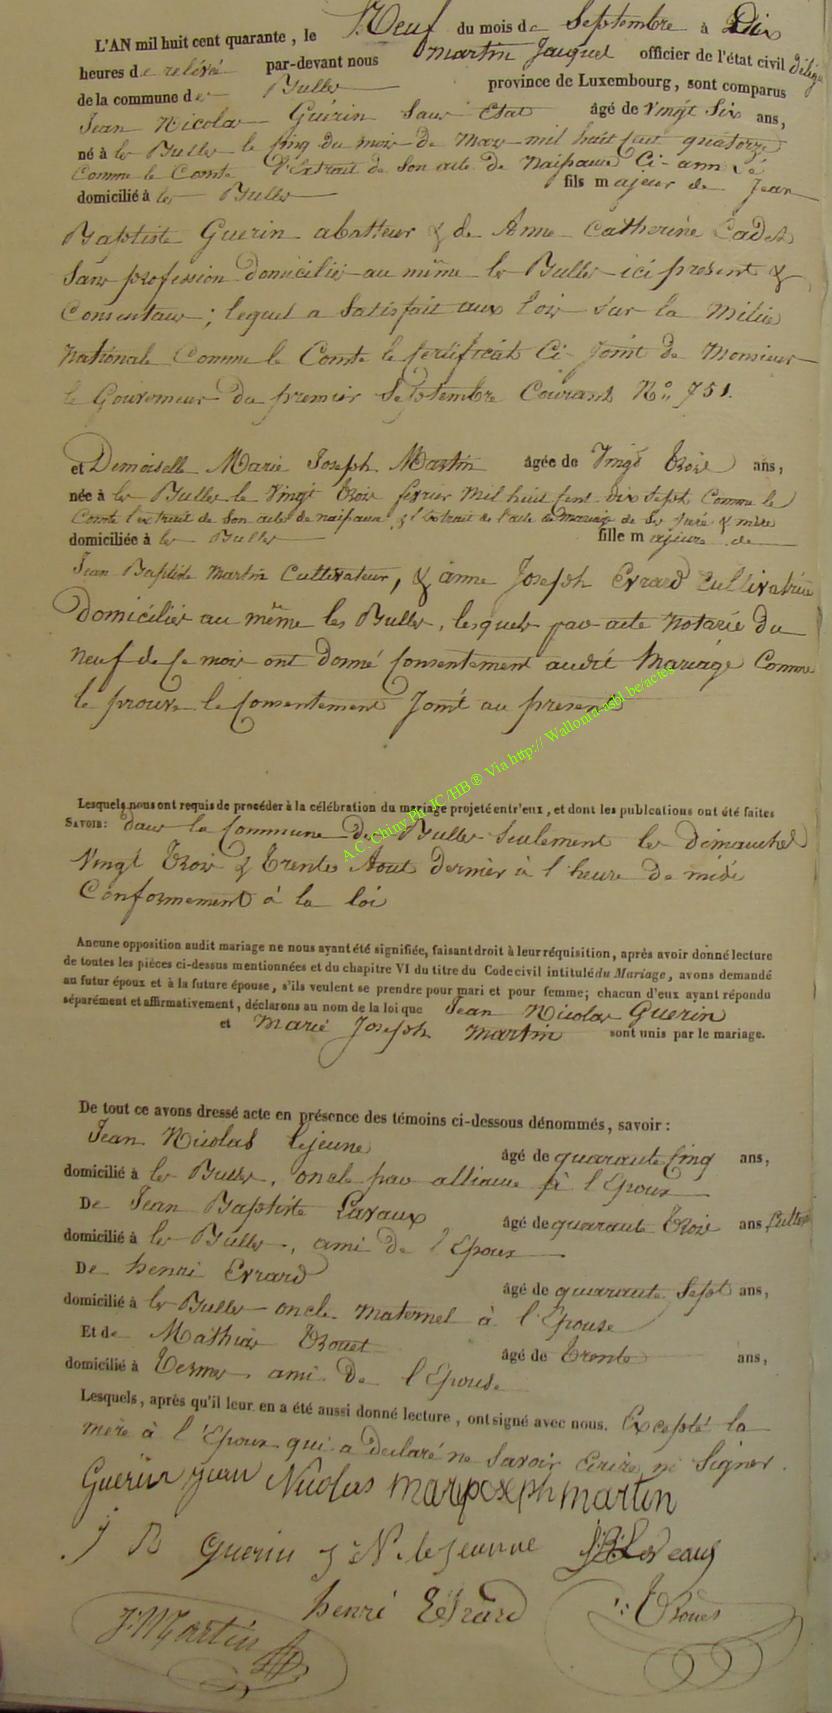 L'AN mil huit cent quarante, le Neuf du mois de Septembre à Dix
heures de relevé par-devant nous Martin Jacquet officier de l'état civil délégé
de la commune de Bulles province de Luxembourg, sont comparus
Jean Nicolas Guérin Sans Etat âgé de Vingt Six ans,
né à les Bulles le cinq du mois de Mars mil huit cent quatorze
Comme le Comte l'Extrait de Son acte de Naissance Ci-annexé
domicilié à les Bulles fils majeur de Jean
Baptiste Guerin abatteur & de Anne Catherine Cadet
Sans profession domicilié au même les Bulles ici present &
Consentans; lequel a Satisfait aux loix sur la Milice
Nationale Comme le Comte le certificat Ci-Joint de Monsieur
le Gouverneur du premier Septembre Courant No. 751.
et Demoiselle Marie Joseph Martin âgée de Vingt trois ans,
née à les Bulles le Vingt trois fevrier Mil huit cent dix Sept Comme le
Comte l'extrait de Son acte de naissance & l'extrait de l'acte de mariage de Ses père & mère
domiciliée à les Bulles fille majeure de
Jean Baptiste Martin Cultivateur, & anne Joseph Evrard Cultivatrice
domiciliés au même les Bulles, lesquels par acte Notarié du
neuf de ce mois ont donné consentement audit Mariage Comme
le prouve le consentement Joint au present
Lesquels nous ont requis de procéder à la célébration du mariage projeté entr'eux, et dont les publcations ont été faites
SAVOIR: dans la Commune de Bulles Seulement les dimanches
Vingt trois & trente Aout dernier à l'heure de midi
Conformement à la loi
Aucune opposition audit mariage ne nous ayant été signifiée, faisant droit à leur réquisition, après avoir donné lecture
de toutes les pièces ci-dessus mentionnées et du chapitre VI du titre du Code civil intitulé du Mariage, avons demandé
au futur époux et à la future épouse, s'ils veulent se prendre pour mari et pour femme; chacun d'eux ayant répondu
séparément et affirmativement, déclarons au nom de la loi que Jean Nicolas Guerin
et Marie Joseph Martin sont unis par le mariage.
De tout ce avons dressé acte en présence des témoins ci-dessous dénommés, savoir:
Jean Nicolas Lejeune âgé de quarante cinq ans,
domicilié à les Bulles, oncle par alliance à l'Epoux
De Jean Baptiste Lavaux âgé de quarante trois ans
domicilié à les Bulles, ami de l'Epoux
De henri Evrard âgé de quarante Sept ans,
domicilié à les Bulles oncle maternel à l'Epouse
Et de Mathias trouet âgé de trente ans,
domicilié à termes ami de l'Epouse
Lesquels, après qu'il leur en a été aussi donné lecture, ont signé avec nous. Excepté la
mère à l'Epoux qui a declaré ne Savoir Ecrire ni Signer.
Guerin jean Nicolas marijoseph martin
J B Guerin J N lejeunne
J. Martin henri Evrard
A.C. Chiny Ph JC/HB ® Via http:// Wallonia-asbl.be/actes